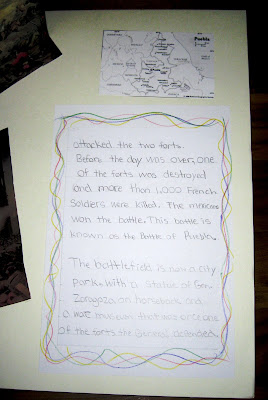 Puebla
attacked the two forts.
Before the day was over, one
of the forts was destroyed
and more than 1,000 French
soldiers were killed. The mexicans
won the battle. This battle is
known as the Battle of Puebla.
The battlefield is now a city
park, with a statue of Gen.
Zaragoza on horseback and
a museum that was once one
of the forts the General defended.